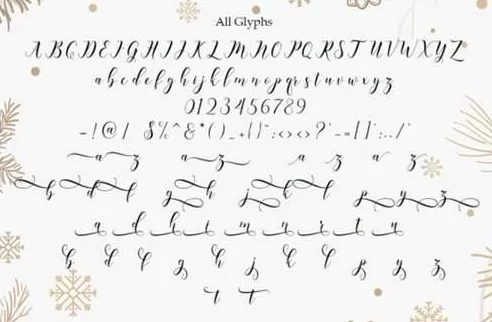 All Glyphs
A B C D E F G H I J K L M N O P Q R S T U V W X Y Z
a b c d e f g h i j k l m n o p q r s t u v w x y z
0 1 2 3 4 5 6 7 8 9
a z a z a z a z
b d f g h j k l p y z
a d h i m u r t u
b d f g h j k l p y z
t t